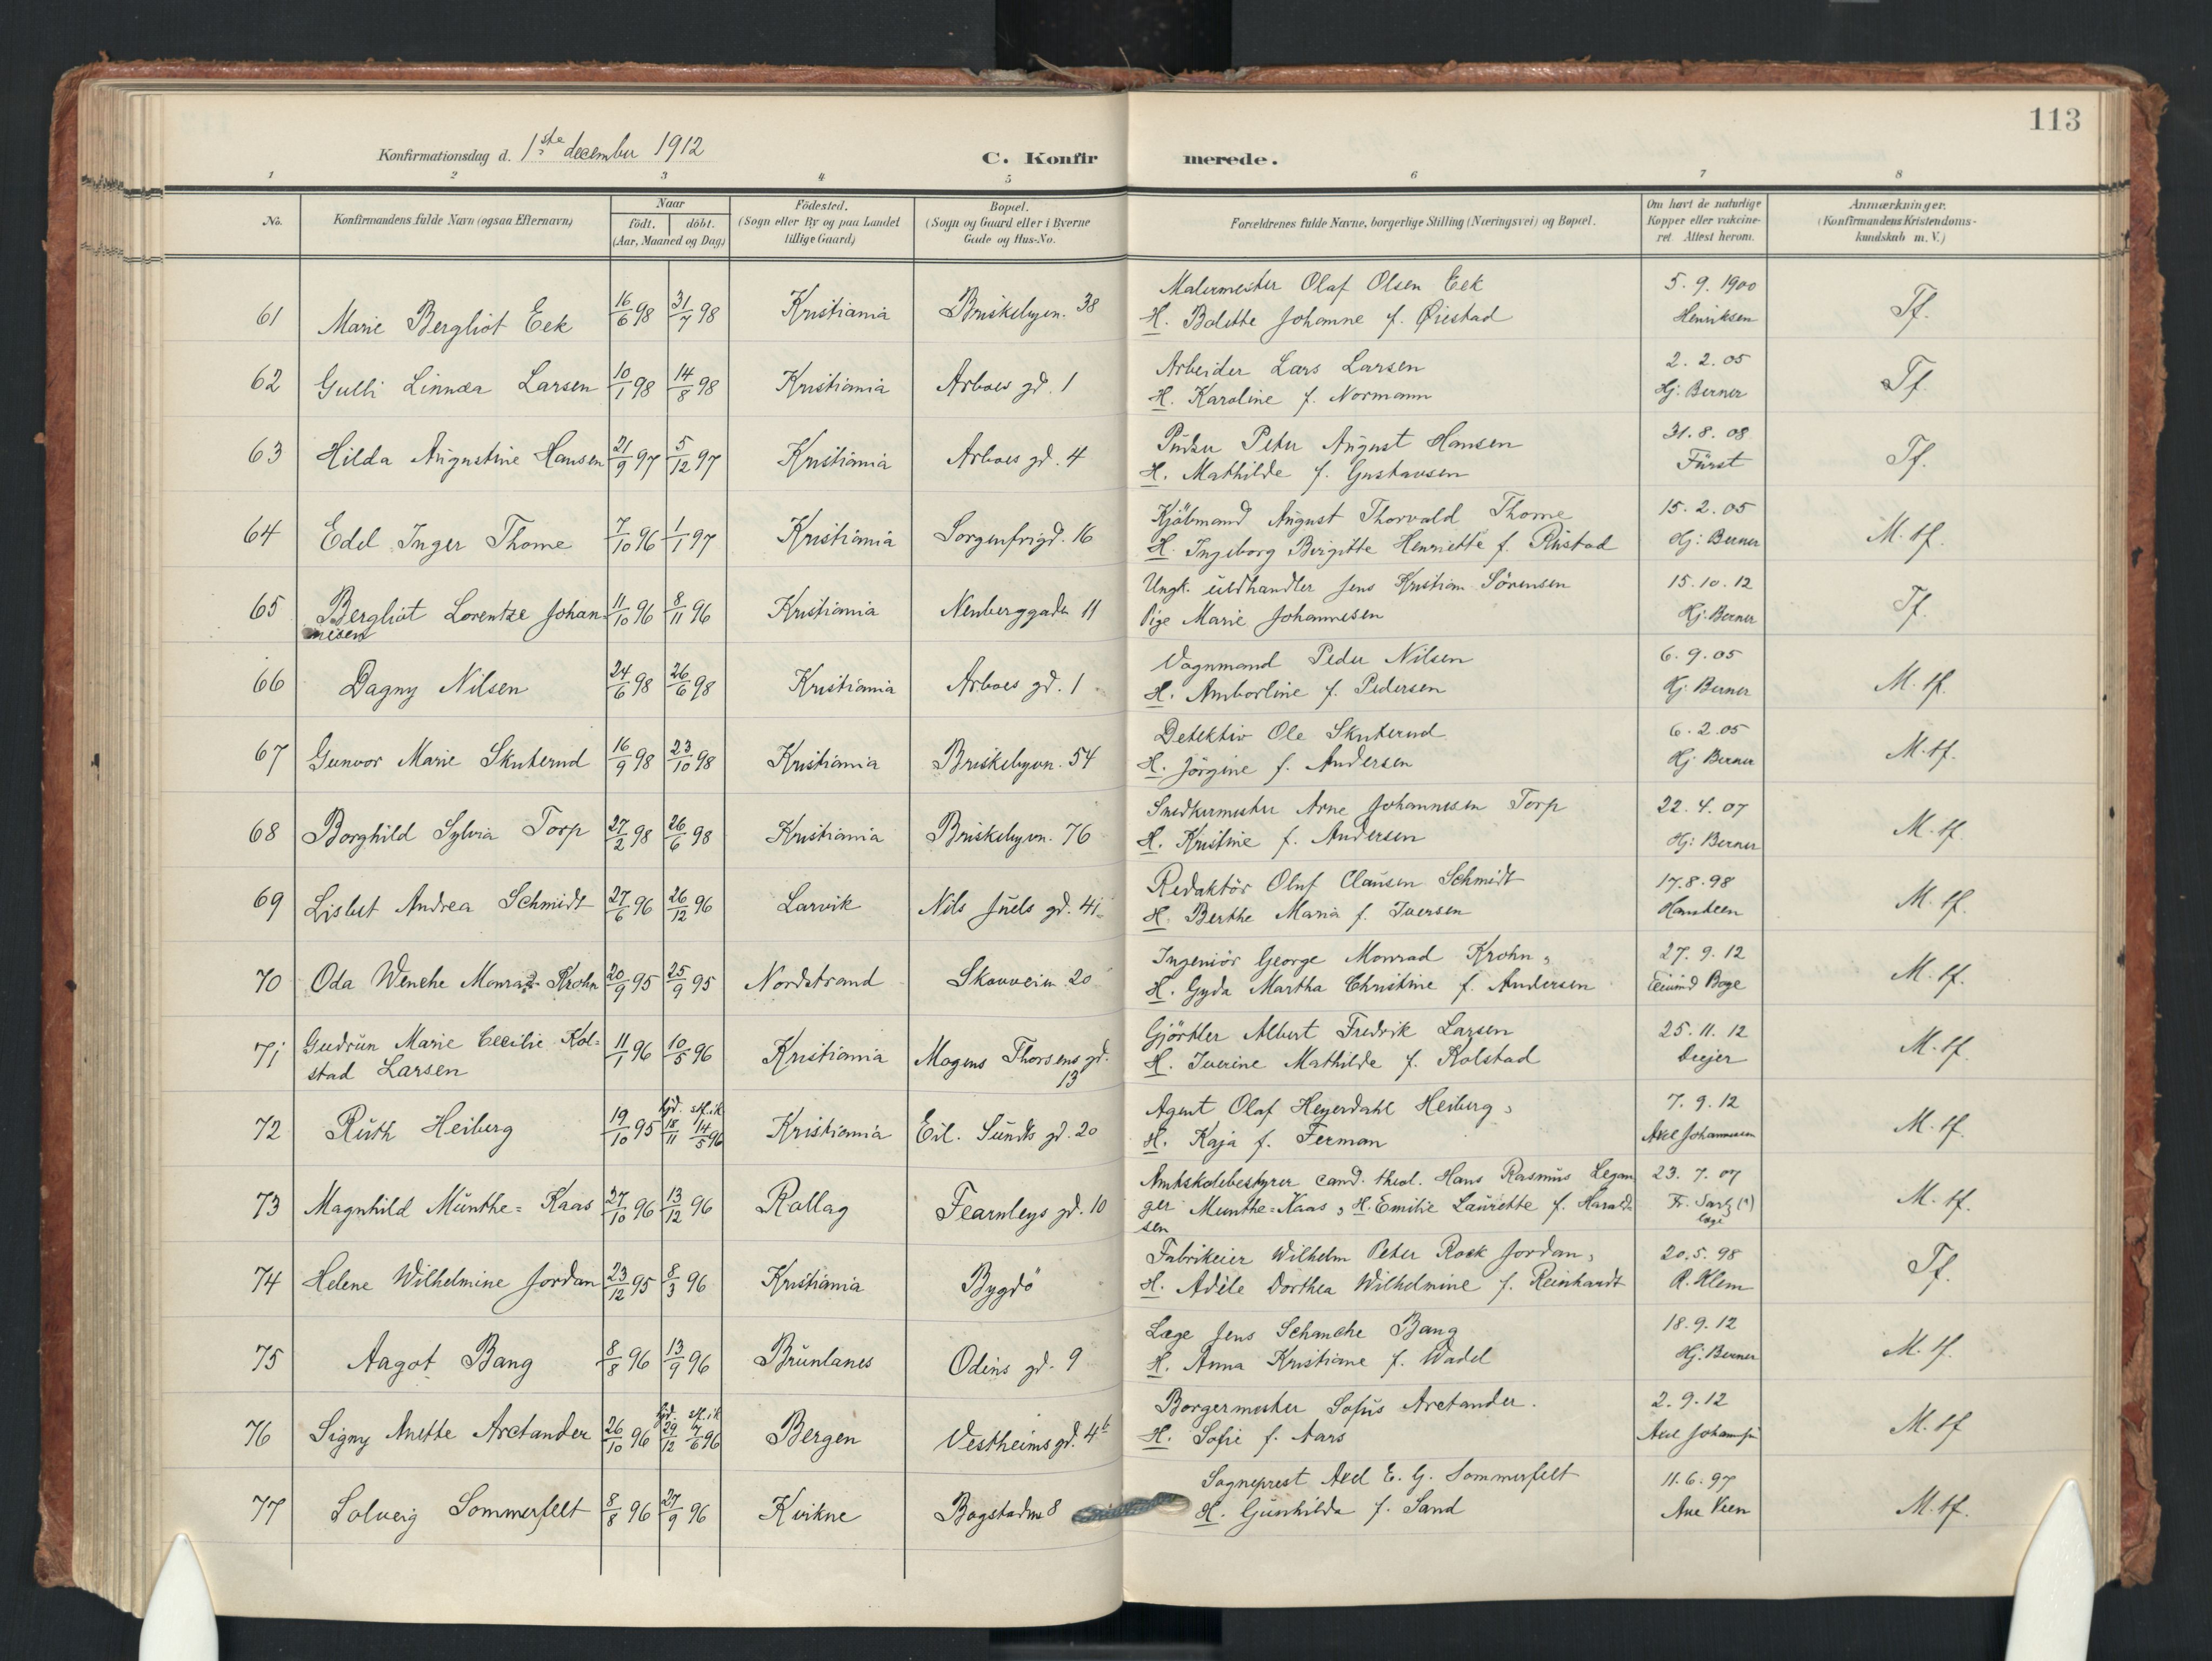 113
Konfirmationsdag d. 1ste december 1912
C. Konfirmerede.
1 2 3 4 5 6 7 8
No. Konfirmandens fulde Navn (ogsaa Efternavn) Naar født. døbt. (Aar, Maaned og Dag) Fødested. (Sogn eller By og paa Landet tillige Gaard) Bopæl. (Sogn og Gaard eller i Byerne Gade og Hus-No. Forældrenes fulde Navne, borgerlige Stilling (Næringsvei) og Bopæl. Om havt de naturlige Kopper eller vakcineret. Attest herom. Anmærkninger. (Konfirmandens Kristendomskundskab m. V.)
61 Marie Bergliot Eek 16/6 98 31/7 98 Kristiania Briskebyvn. 38 Malermester Olaf Olsen Eek 5. 9. 1900 Tf.
H. Bolette Johanne f. Øiestad Henriksen
62 Gulli Linnæa Larsen 10/1 98 14/8 98 Kristiania Arboes gd. 1 Arbeider Lars Larsen 2. 2. 05 Tf.
H. Karoline f. Normann Hj. Berner
63 Hilda Augustine Hansen 21/9 97 5/12 97 Kristiania Arboes gd. 4 Pudser Peter August Hansen 31. 8. 08 Tf.
H. Mathilde f. Gustavsen Fürst
64 Edel Inger Thome 7/10 96 1/1 97 Kristiania Sorgenfrigd. 16 Kjøbmand August Thorvald Thome 15. 2. 05 M. tf.
H. Ingeborg Birgitte Henriette f. Rustad Hj: Berner
65 Bergliot Lorentze Johan- 11/10 96 8/11 96 Kristiania Neuberggaden 11 Ungk. uldhandler Jens Kristian Sørensen 15. 10. 12 Tf.
nesen Pige Marie Johannesen Hj. Berner
66 Dagny Nilsen 24/6 98 26/6 98 Kristiania Arboes gd. 1 Vognmand Peder Nilsen 6. 9. 05 M. tf.
H. Amborline f. Pedersen Hj. Berner
67 Gunvor Marie Skuterud 16/9 98 23/10 98 Kristiania Briskebyvn. 54 Detektiv Ole Skuterud 6. 2. 05 M. tf.
H. Jørgine f. Andersen Hj. Berner
68 Borghild Sylvia Torp 27/2 98 26/6 98 Kristiania Briskebyvn. 76 Snedkermester Arne Johannesen Torp 22. 4. 07 M. tf.
H. Kristine f. Andersen Hj: Berner
69 Lisbet Andrea Schmidt 27/6 96 26/12 96 Larvik Nils Juels gd. 41 Redaktør Oluf Clausen Schmidt 17. 8. 98 M. tf.
H. Berthe Maria f. Iversen Hansteen
70 Oda Wenche Monrad-Krohn 20/9 95 25/9 95 Nordstrand Skovveien 20 Ingeniør George Monrad Krohn, 27. 9. 12 M. tf.
H. Gyda Martha Christine f. Andersen Boge
71 Gudrun Marie Cecilie Kol= 11/1 96 10/5 96 Kristiania Mogens Thorsens gd. 13 Gjørtler Albert Fredrik Larsen 25. 11. 12 M. tf.
stad Larsen H. Iverine Mathilde f. Kolstad Drejer
72 Ruth Heiberg 19/10 95 hjd. 18/11 st. f. i k. 14/5 96 Kristiania Eil. Sundts gd. 20 Agent Olaf Heyerdahl Heiberg, 7. 9. 12 M. tf.
H. Kaja f. Ferman Axel Johannessen
73 Magnhild Munthe=Kaas 27/10 96 13/12 96 Rollag Fearnleys gd. 10 Amtskolebestyrer cand. theol. Hans Rasmus Legan 23. 7. 07 M. tf.
ger Munthe=Kaas, H. Emilie Laurette f. Harald- Fr. (?)
sen læge
74 Helene Wilhelmine Jordan 23/12 95 8/3 96 Kristiania Bygdø Fabrikeier Wilhelm Peter Rock Jordan, 20. 5. 98 Tf.
H. Adéle Dorthea Wilhelmine f. Reinhardt R. Klem
75 Aagot Bang 8/8 96 13/9 96 Brunlanes Odins gd. 9 Læge Jens Schanche Bang 18. 9. 12 M. tf.
H. Anna Kristiane f. Wadel Hj. Berner
76 Signy Anette Arctander 26/10 96 hjd. 29/12 st. f. i k. 7/6 96 Bergen Vestheimsgd. 4b Borgermester Sofus Arctander. 2. 9. 12 M. tf
H. Sofie f. Aars Axel
77 Solveig Sommerfelt 8/8 96 27/9 96 Kvikne Bogstadvn 8 Sogneprest Axel E. G. Sommerfelt 11. 6. 97 M. tf.
H. Gunhilda f. Sand